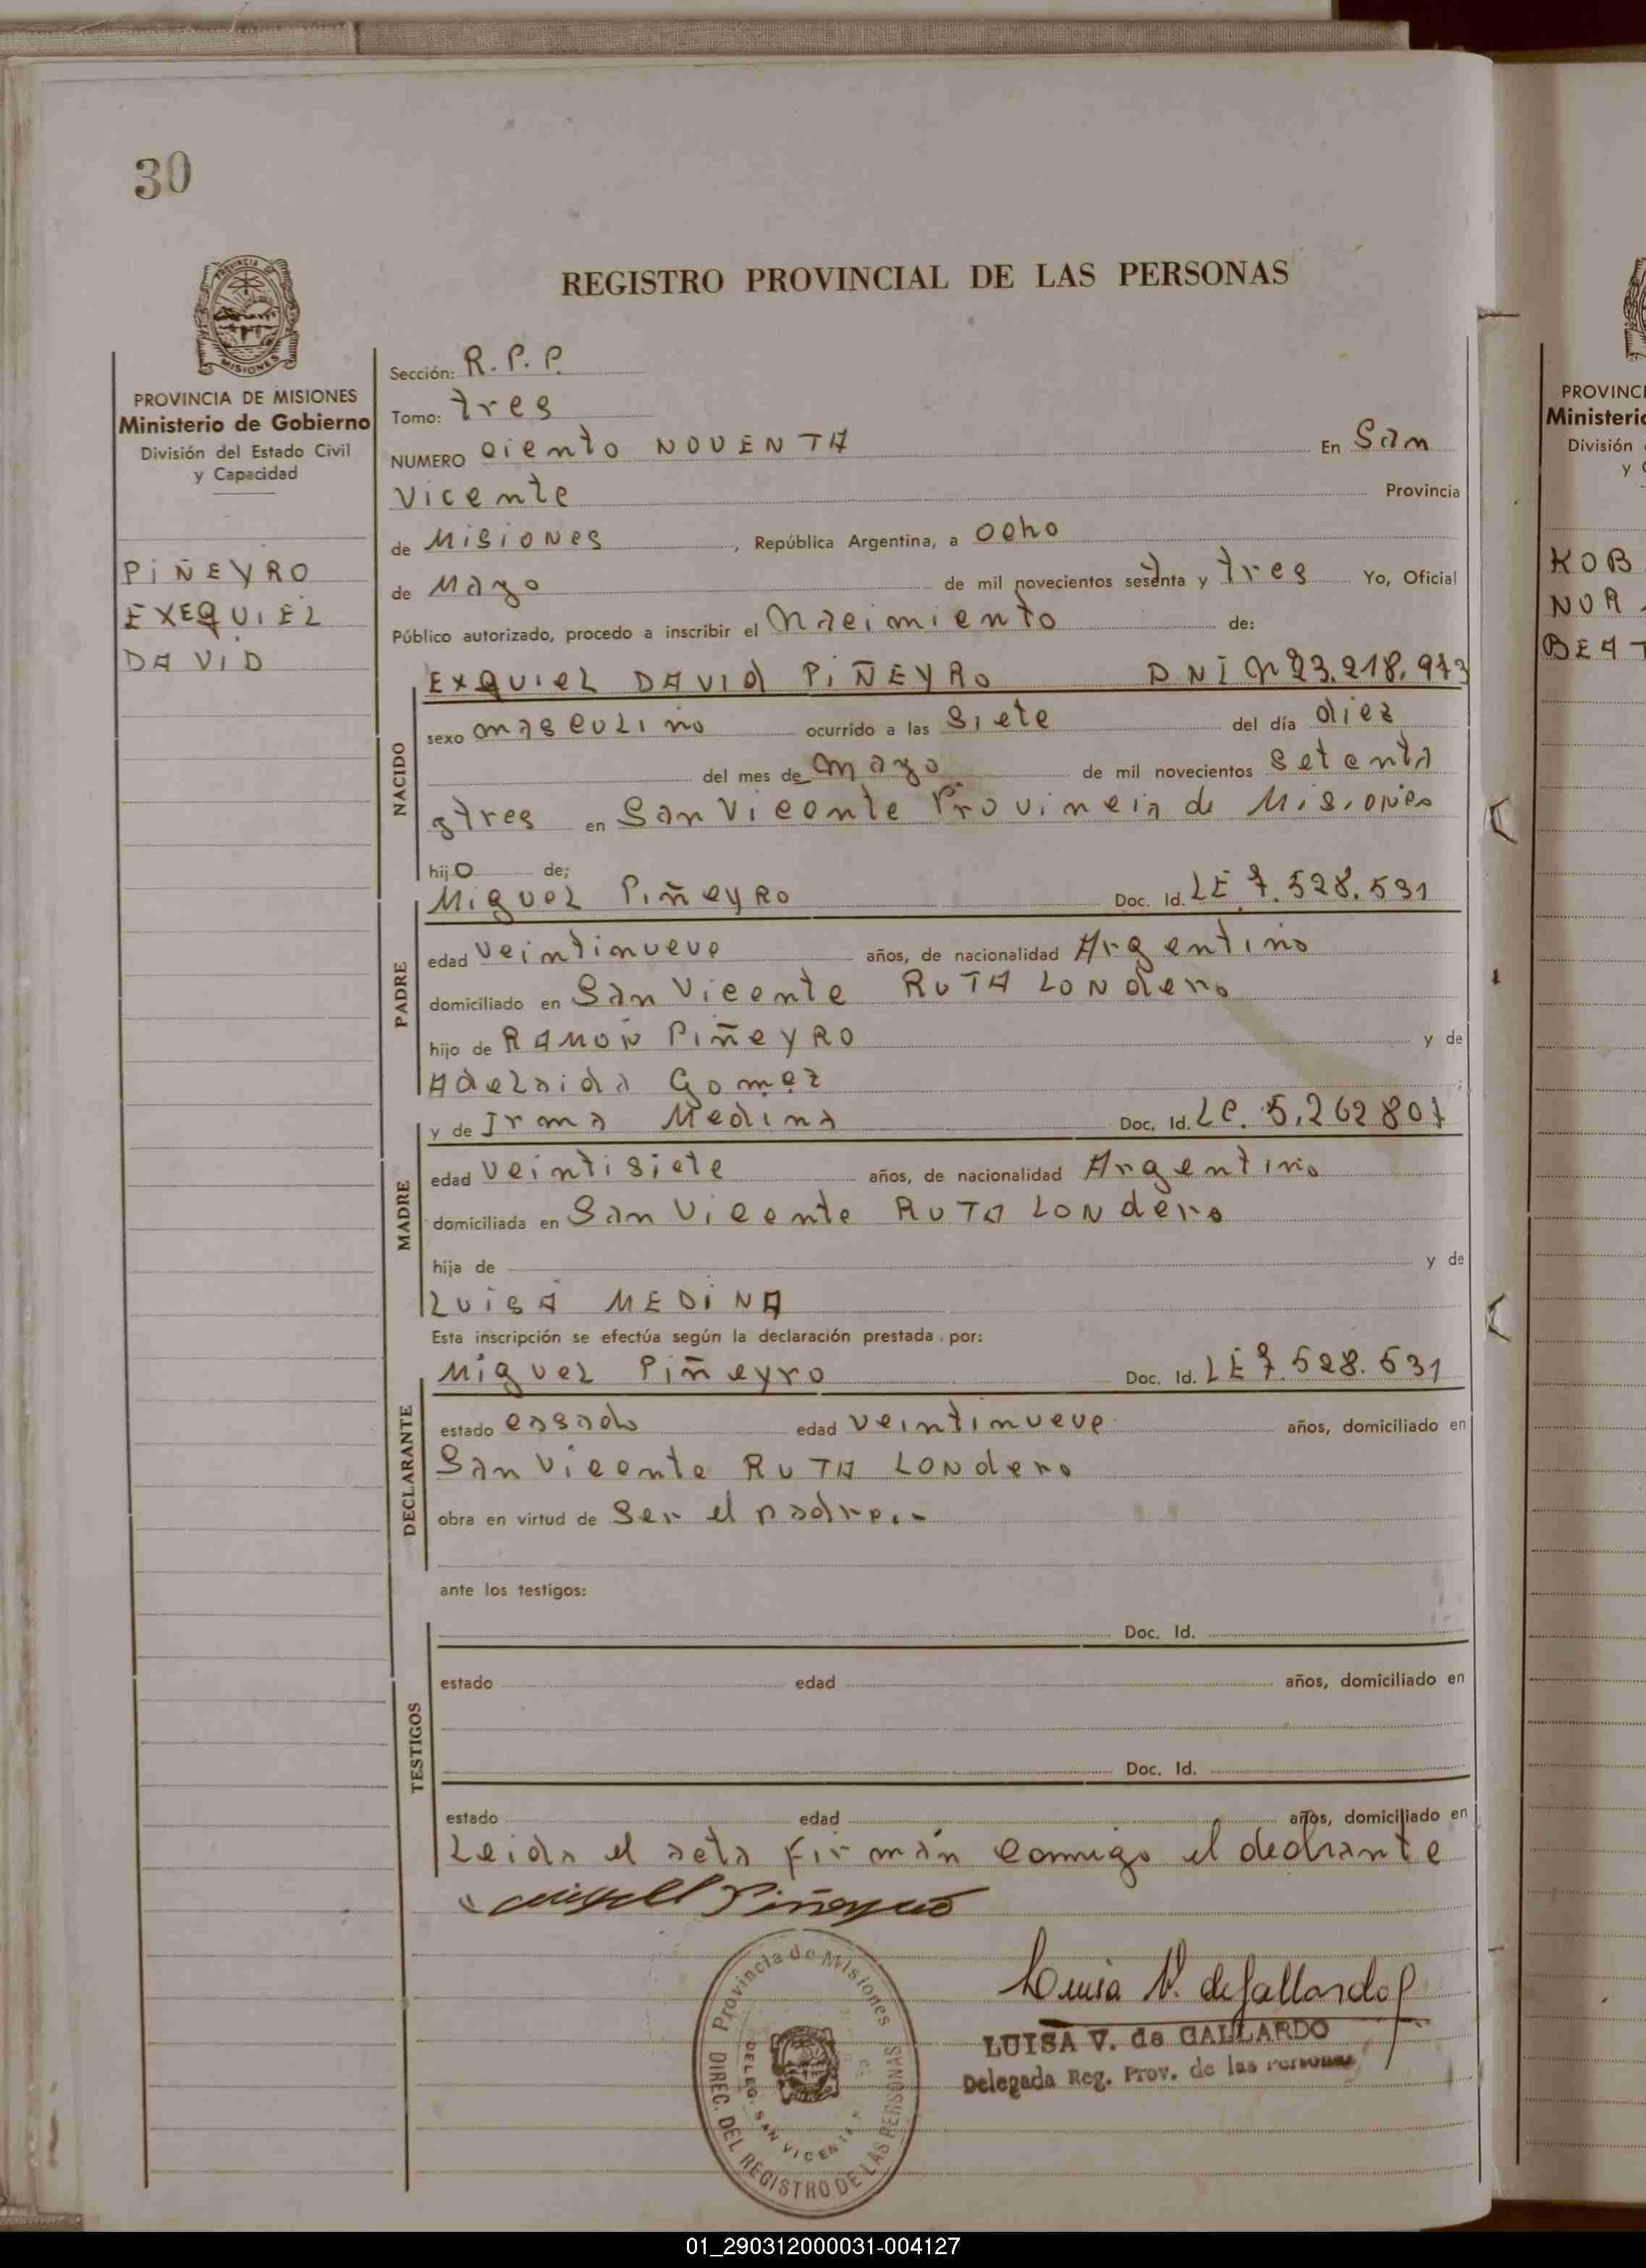 30
REGISTRO PROVINCIAL DE LAS PERSONAS
MISIONES
PROVINCIA DE MISIONES
Ministerio de Gobierno
División del Estado Civil
y Capacidad
PIÑEYRO
EXEQUIEL
DAVID
Sección: R.P.P.
Tomo: tres
NUMERO ciento NOVENTA En San
Vicente Provincia
de Misiones, República Argentina, a ocho
de Mayo de mil novecientos sesenta y tres Yo, Oficial
Público autorizado, procedo a inscribir el Nacimiento de:
EXQUIEL DAVID PIÑEYRO DNI Nº 23.218.973
NACIDO
sexo masculino ocurrido a las Siete del día diez
del mes de mayo de mil novecientos setenta
ytres en San Vicente Provincia de Misiones
hijo de;
Miguel Piñeyro Doc. Id. LE 7.528.531
PADRE
edad veintinueve años, de nacionalidad Argentino
domiciliado en San Vicente RUTA LONdero
hijo de RAMON Piñeyro y de
Adelaida Gomez
y de Irma Medina Doc. Id. LC. 5.262807
MADRE
edad veintisiete años, de nacionalidad Argentina
domiciliada en San Vicente RUTA LONdero
hija de y de
LUISA MEDINA
Esta inscripción se efectúa según la declaración prestada por:
Miguel Piñeyro Doc. Id. LE 7.528.531
DECLARANTE
estado casado edad veintinueve años, domiciliado en
San Vicente RUTA LONdero
obra en virtud de Ser el padre.-
ante los testigos:
TESTIGOS
Doc. Id.
estado edad años, domiciliado en
Doc. Id.
estado edad años, domiciliado en
Leida el acta firmán conmigo el declrante
Miguel Piñeyro
Luisa V. de Gallardo
LUISA V. de GALLARDO
Delegada Reg. Prov. de las Personas
Provincia de Misiones
DIREC. DEL REGISTRO DE LAS PERSONAS
DELEG. SAN VICENTE
PROVINCI
Ministeri
División
y
KOB
NOR
BEAT
01_290312000031-004127